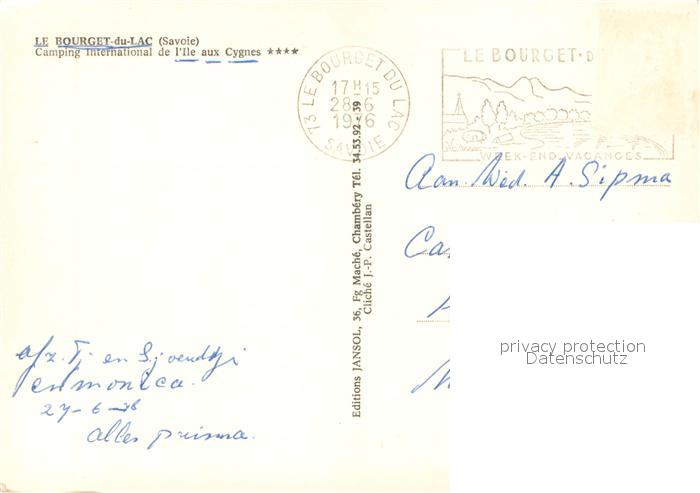 LE BOURGET-du-LAC (Savoie)
Camping International de l'Ile aux Cygnes ****
73 LE BOURGET DU LAC
17H15
28-6
1976
SAVOIE
LE BOURGET-D
WEEK-END_VACANCES
Editions JANSOL, 36, Fg Maché, Chambéry Tél. 34.53.92 - 39
Cliché J.-P. Castellan
Aan. Wed. A. Sipma
Ca
privacy protection
Datenschutz
afz. Tj en Sjoerdtji
en monica.
27-6-76
alles prima.